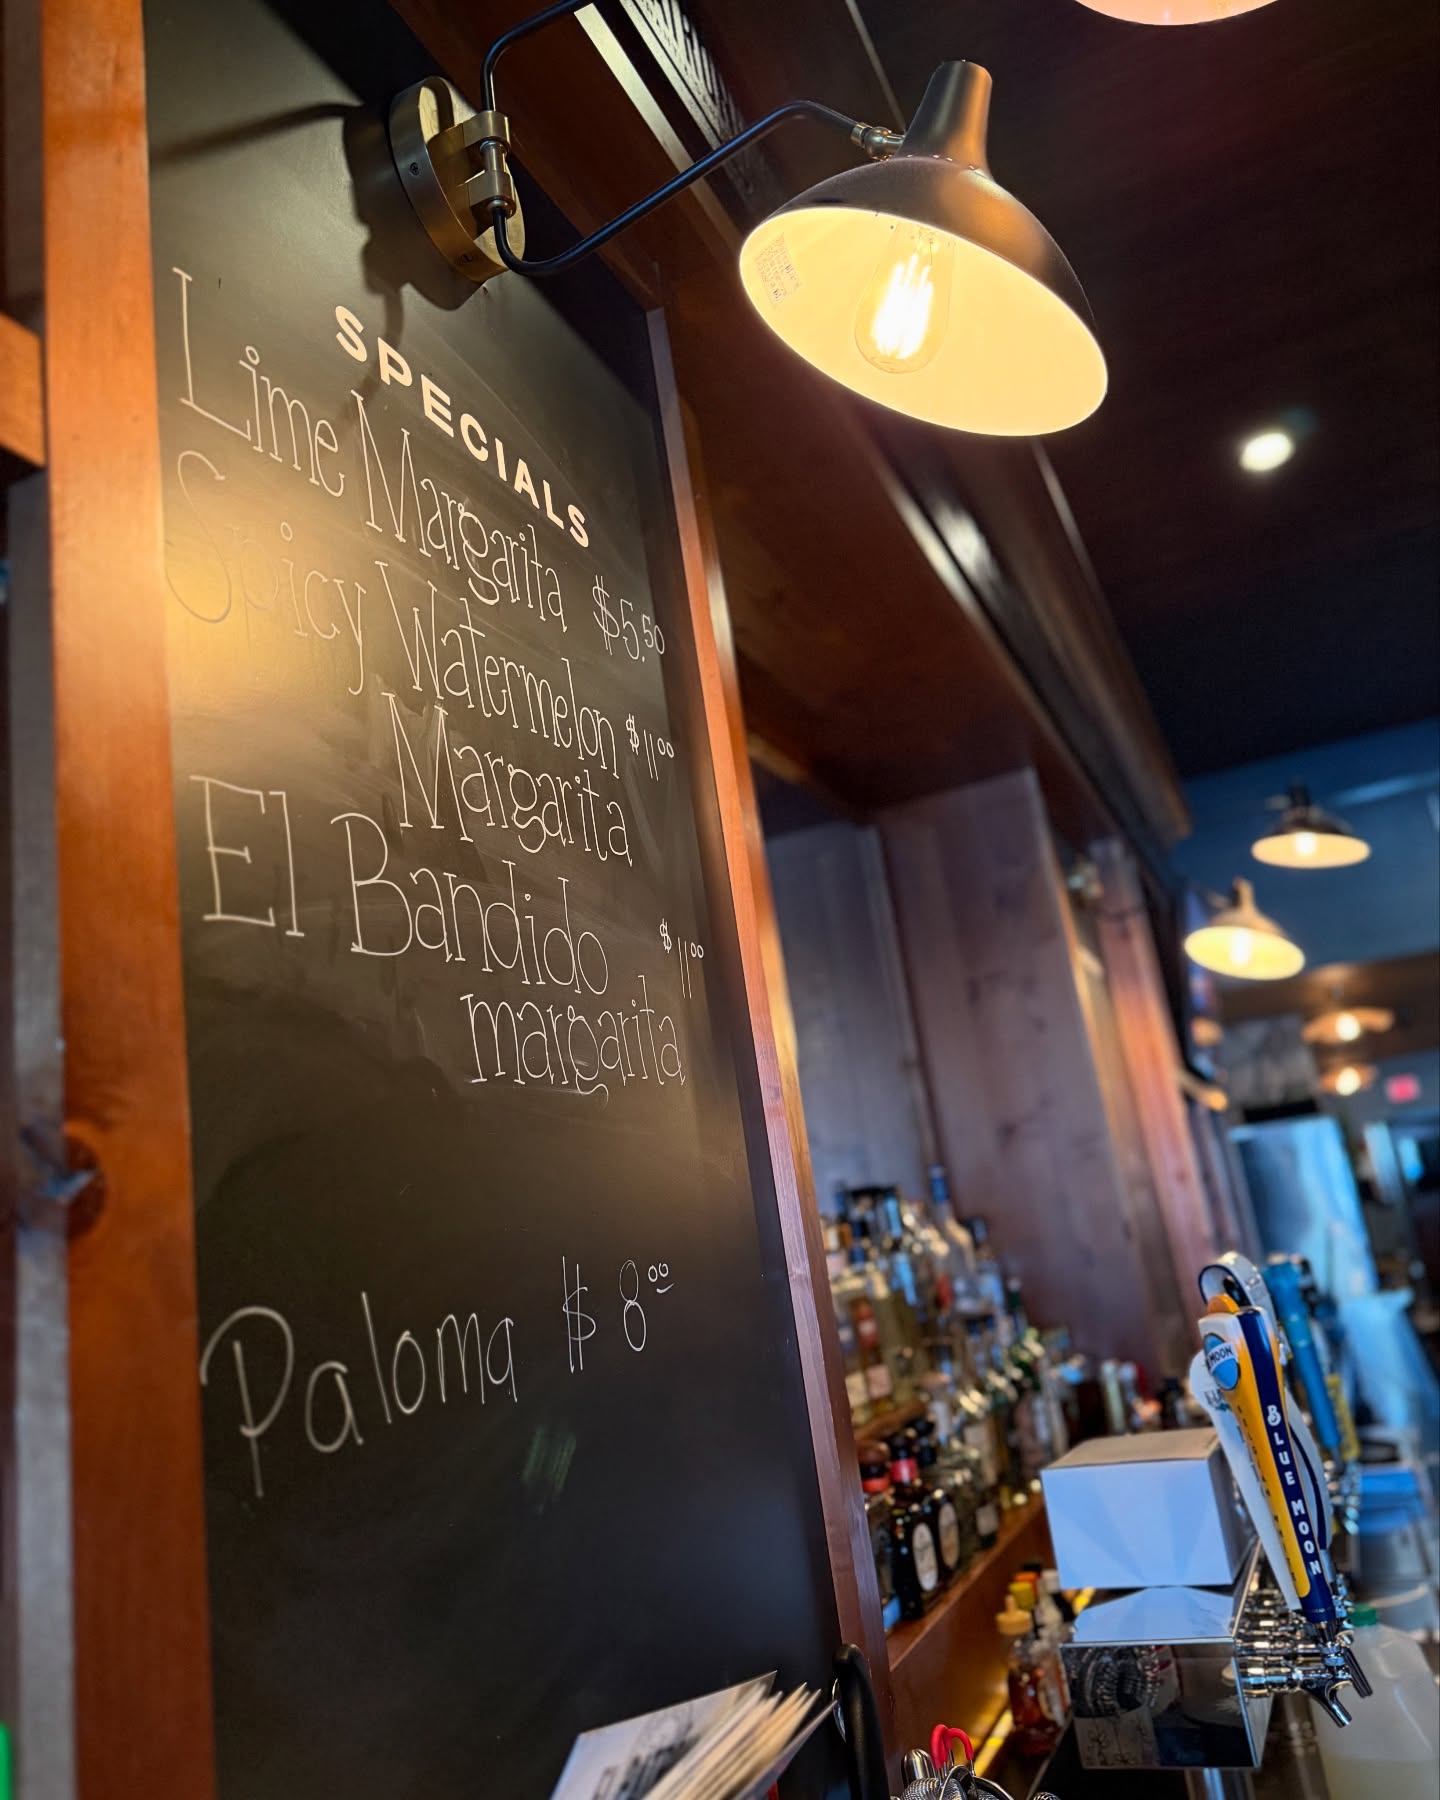 SPECIALS
Lime Margarita $5.50
Spicy Watermelon $11.00
Margarita
El Bandido $11.00
margarita
Paloma $8.00
BLUE MOON
MOON